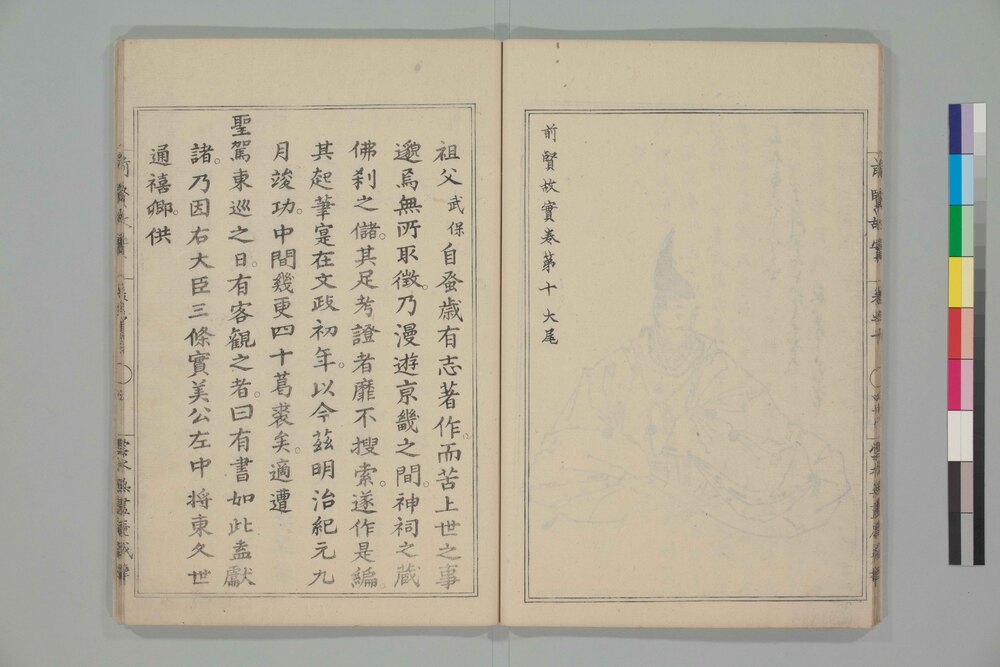 前賢故實卷第十大尾
祖父武保自蚤歲有志著作。而苦上世之事
邈焉無所取徵。乃漫遊京畿之間。神祠之藏
佛刹之儲。其足考證者靡不搜索。遂作是編。
其起筆寔在文政初年。以今茲明治紀元九
月竣功。中間幾更四十葛裘矣。適遭
聖駕東巡之日。有客觀之者。曰有書如此盍獻
諸。乃因右大臣三條實美公左中將東久世
通禧卿。供